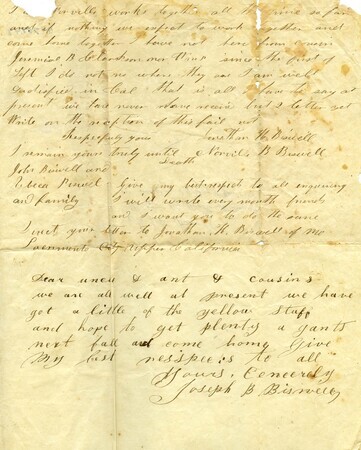 I and Norvills works together all the time so far
and if nothing we expect to work together and
come home together I have not from cousin
Jeremiah B Clarkson nor since the first of
Sept I do not no where they are I am well
Sadisfied in Cal that is all I have to say at
present we have never have receive but 1 letter yet
Write on the reception of this fail not
Respecfully yours Jonathan H Biswell
I remain your truly until Death Norvile B Biswell
John Biswell and
Give my best respect to all enquireing
and family I will write every month friends
and I want you to do the same
Direct your letter to Jonathan H Biswell of
Sacramento City upper California
Dear uncle & ant & cousins
we are all well at present we have
got a little of the yellow stuff
and hope to get plenty a gants
next fall and come home Give
My best nesspects to all
Yours. Concerely
Joseph B Biswell